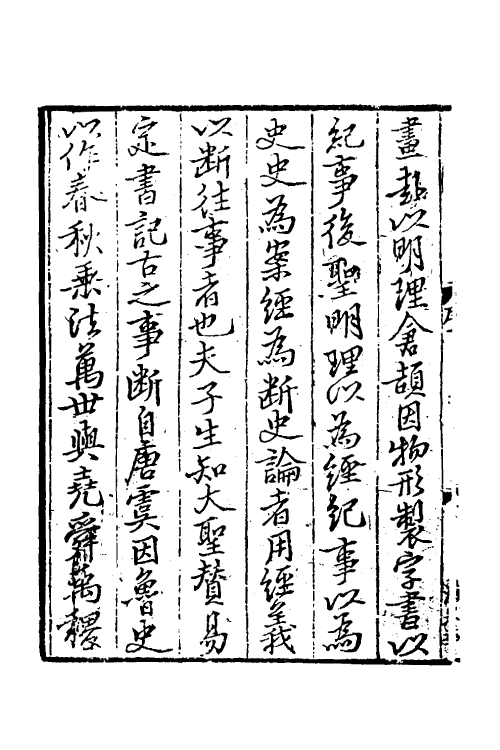 畫卦以明理倉頡因物形製字書以
紀事後聖明理以為經紀事以為
史史為案經為斷史論者用經義
以断往事者也夫子生知大聖賛易
定書記古之事断自唐虞因魯史
以作春秋垂法萬世與堯舜禹稷